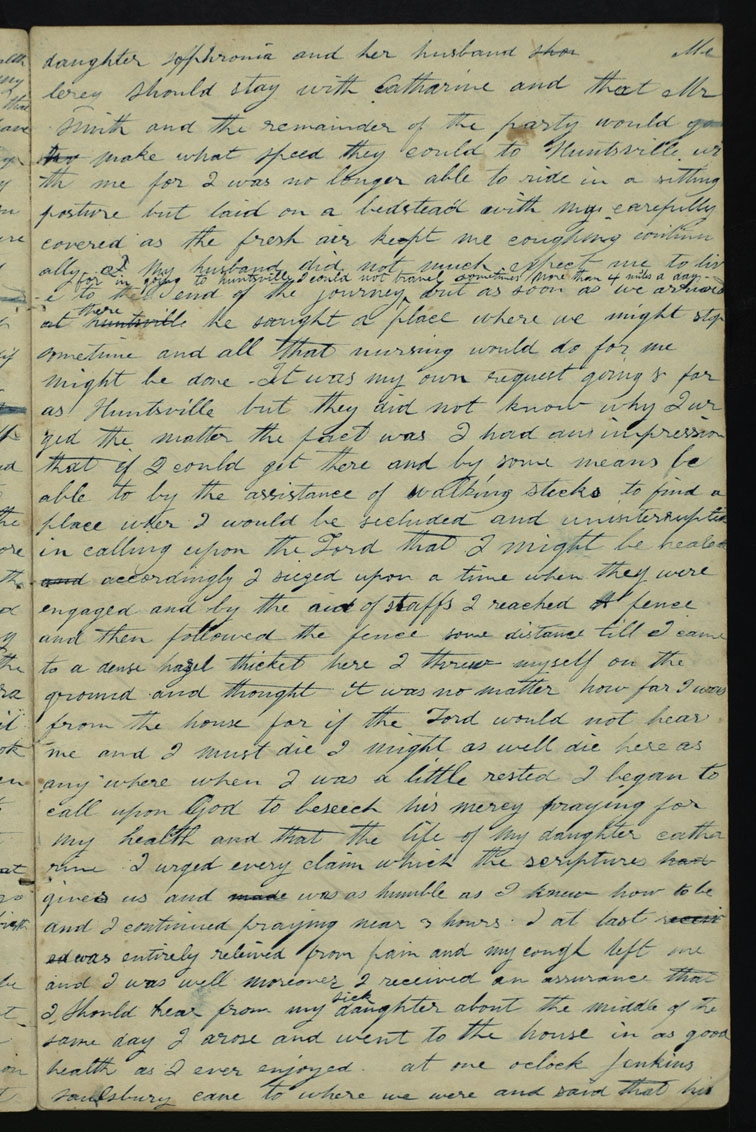 daughter sophronia and her husband shou Mc
lerey should stay with Catharine and that Mr
Smith and the remainder of the party would go
make what speed they could to Huntsville wi
th me for I was no longer able to ride in a sitting
posture but laid on a bedstead with my carefully
covered as the fresh air kept me coughing continu
ally. My husband did not much expect me to liv
for in going to huntsville I could not travel sometimes more than 4 miles a day
e to the end of the journey but as soon as we arrived
there
at huntsville he saught a place where we might stop
sometime and all that nursing would do for me
might be done - It was my own request going so far
as Huntsville but they did not know why I ur
ged the matter the fact was I had an impression
that if I could get there and by some means be
able to by the assistance of walking stecks to find a
place wher I would be secluded and uninterrupted
in calling upon the Lord that I might be healed
and accordingly I siezed upon a time when they were
engaged and by the aid of staffs I reached A fence
and then followed the fence some distance till I came
to a dense hazel thicket here I threw myself on the
ground and thought it was no matter how far I was
from the house for if the Lord would not hear
me and I must die I might as well die here as
any where when I was a little rested I began to
call upon God to beseech his mercy praying for
my health and that the life of my daughter catha
rine I urged every claim which the scriptures had
gives us and made was as humble as I knew how to be
and I continued praying near 3 hours. I at last receiv
ed was entirely relieved from pain and my cough left me
and I was well moreover I received an assurance that
sick
I should hear from my daughter about the middle of the
same day I arose and went to the house in as good
health as I ever enjoyed. at one oclock Jenkins
saulsbury cane to where we were and said that his